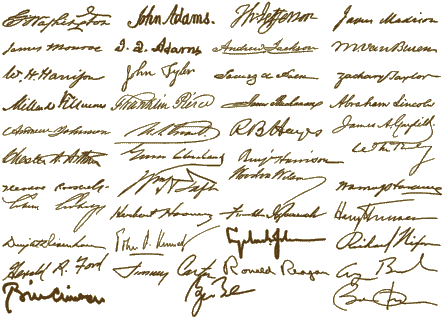 G Washington John Adams. Th Jefferson James Madison
James Monroe J. Q. Adams Andrew Jackson M Van Buren
W. H. Harrison John Tyler James K Polk Zachary Taylor
Millard Fillmore Franklin Pierce James Buchanan Abraham Lincoln
Andrew Johnson U.S. Grant R B Hayes James A. Garfield
Chester A. Arthur Grover Cleveland Benj Harrison
Theodore Roosevelt Wm H Taft Woodrow Wilson Warren G Harding
Calvin Coolidge Herbert Hoover Franklin D Roosevelt Harry Truman
Dwight D Eisenhower John F. Kennedy Richard Nixon
Gerald R. Ford Jimmy Carter Ronald Reagan
Bill Clinton